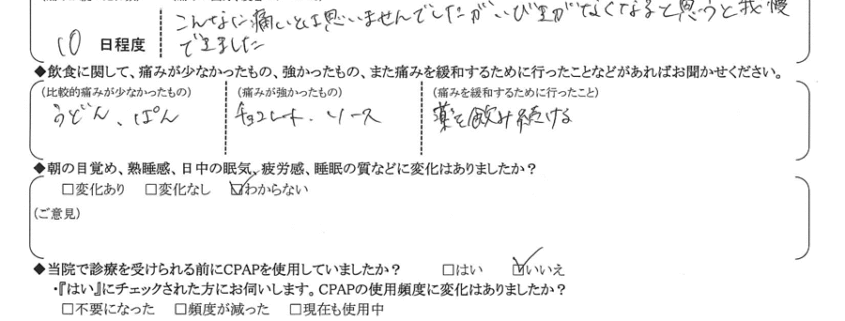 こんなに痛いとは思いませんでしたがいびきがなくなると思うと我慢
10 日程度 できました
◆飲食に関して、痛みが少なかったもの、強かったもの、また痛みを緩和するために行ったことなどがあればお聞かせください。
(比較的痛みが少なかったもの) (痛みが強かったもの) (痛みを緩和するために行ったこと)
うどん、ぱん チョコレート、ソース 薬を飲み続ける
◆朝の目覚め、熟睡感、日中の眠気、疲労感、睡眠の質などに変化はありましたか？
□変化あり □変化なし ☑わからない
(ご意見)
◆当院で診療を受けられる前にCPAPを使用していましたか？ □はい ☑いいえ
・『はい』にチェックされた方にお伺いします。CPAPの使用頻度に変化はありましたか？
□不要になった □頻度が減った □現在も使用中